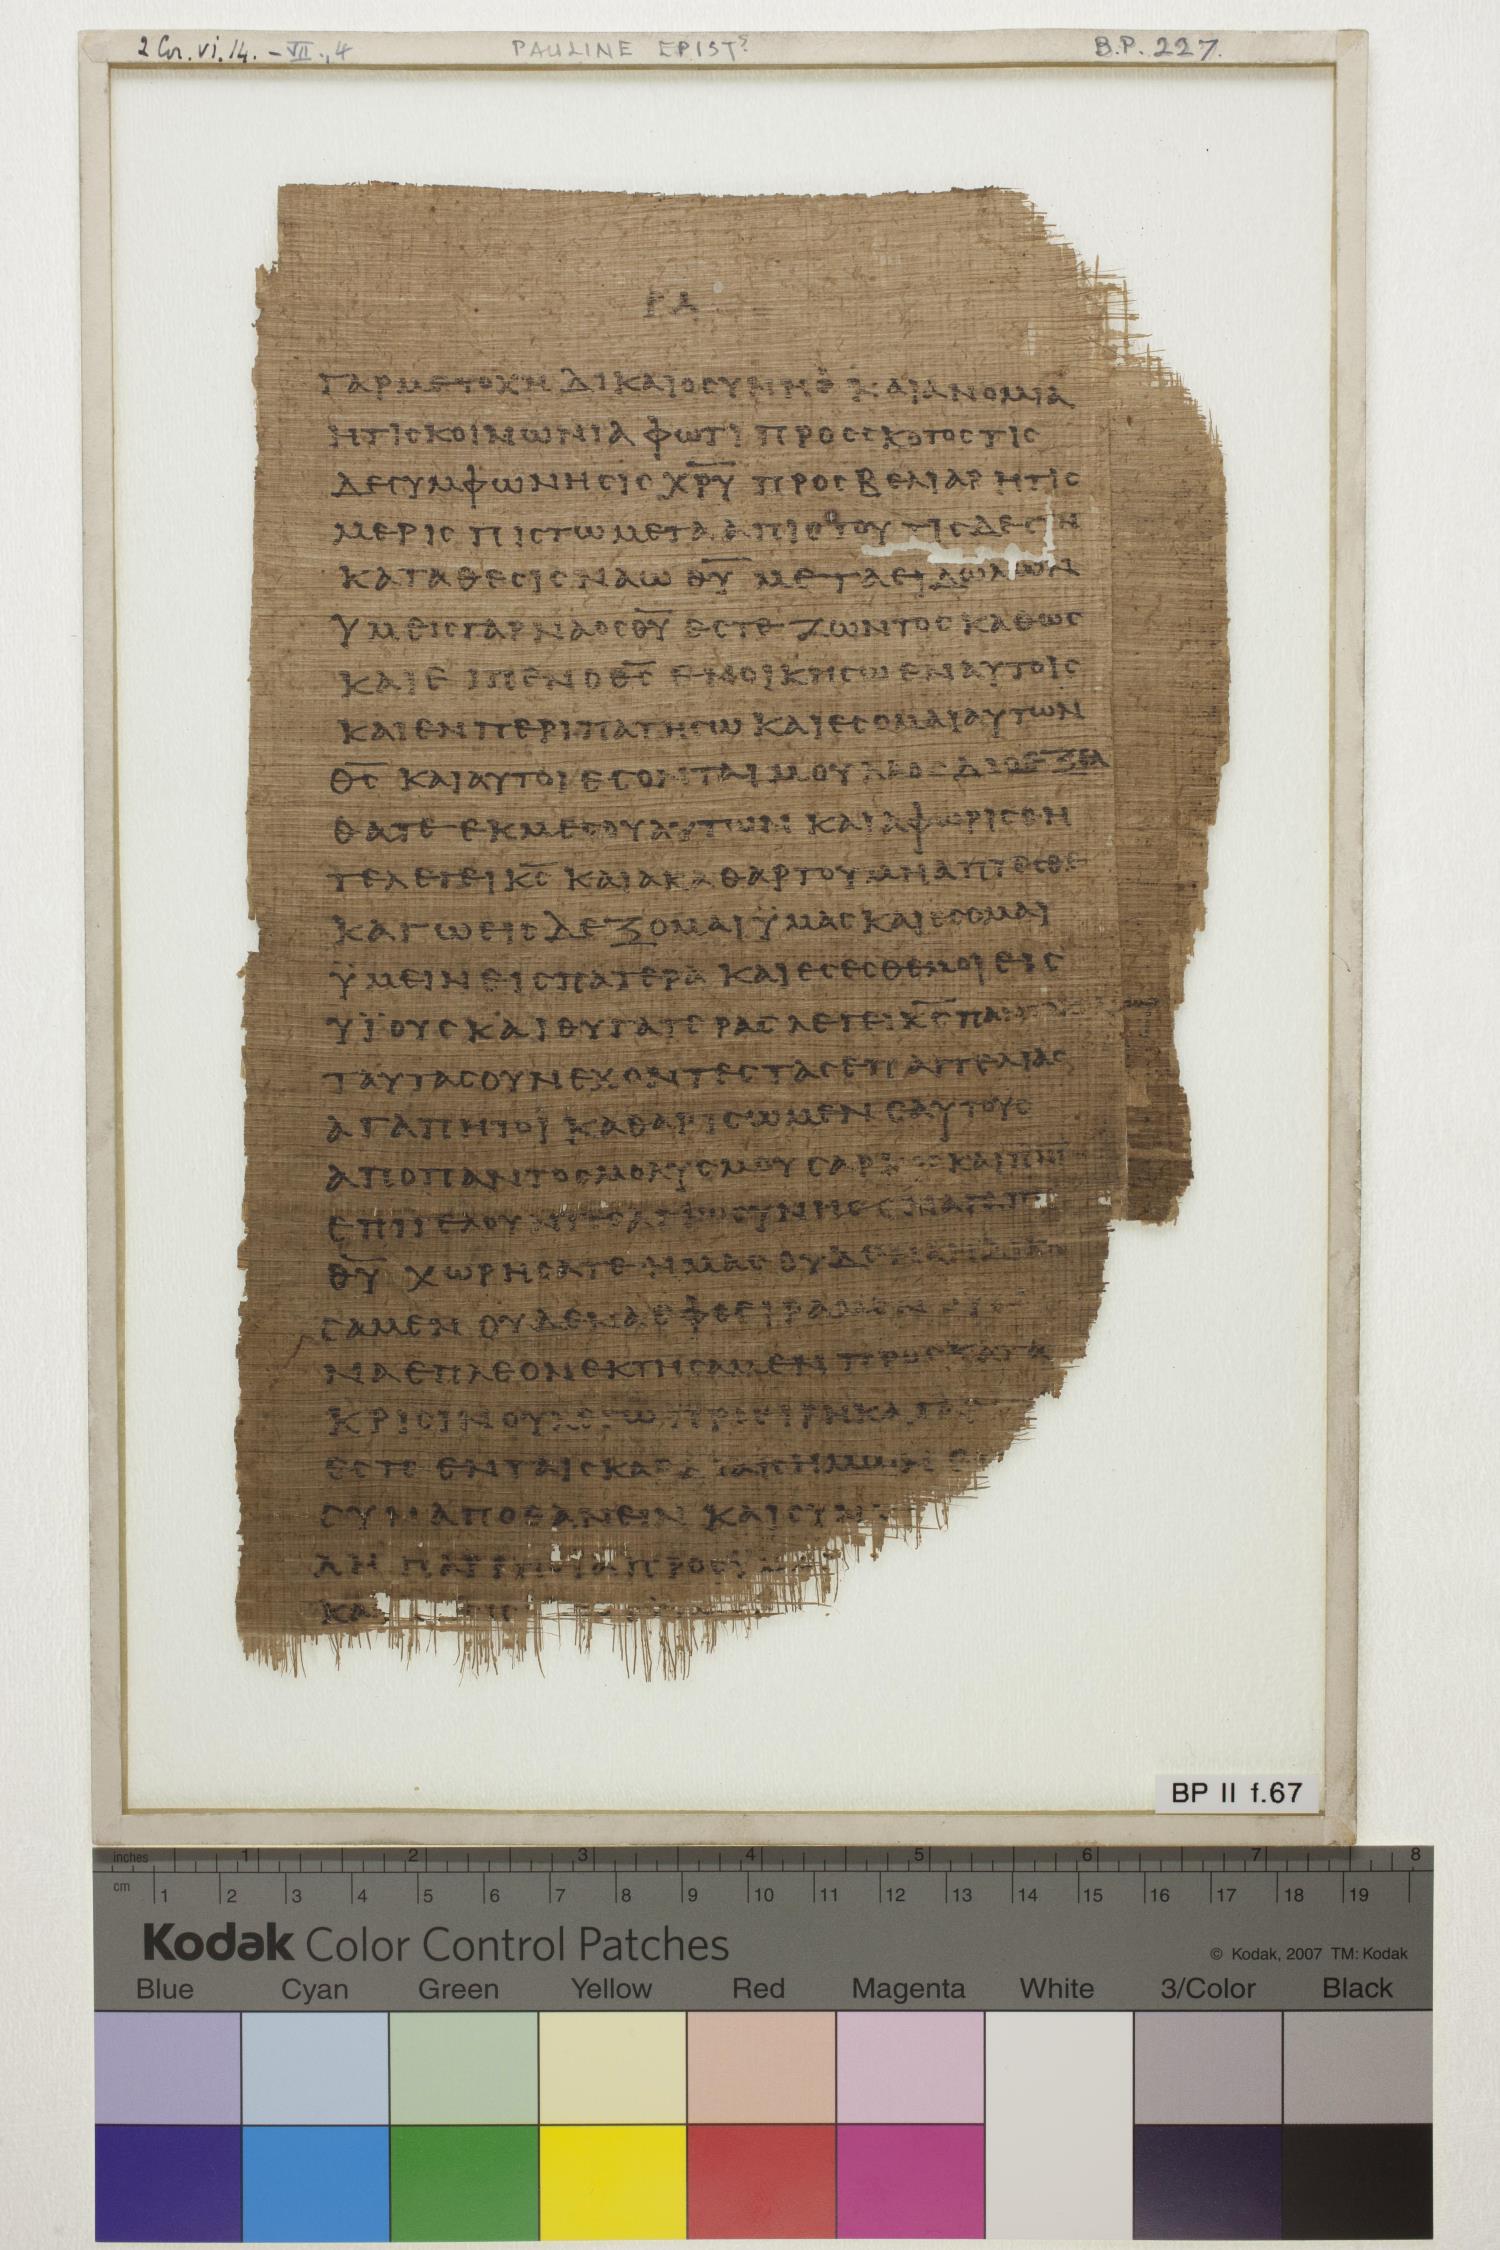 2 Cor. vi. 14. – VII., 4 PAULINE EPIST? B.P. 227.
ΡΛ
ΓΑΡΜΕΤΟΧΗ ΔΙΚΑΙΟΣΥΝΗΣ ΚΑΙΑΝΟΜΙΑ
ΗΤΙΣΚΟΙΝΩΝΙΑ ΦΩΤΙ ΠΡΟΣΣΚΟΤΟΣ ΤΙΣ
ΔΕΣΥΜΦΩΝΗΣΙΣ ΧΡΥ ΠΡΟΣ ΒΕΛΙΑΡ ΗΤΙΣ
ΜΕΡΙΣ ΠΙΣΤΩ ΜΕΤΑ ΑΠΙΣΤΟΥ ΤΙΣ ΔΕ ΣΥΝ
ΚΑΤΑΘΕΣΙΣ ΝΑΩ ΘΥ ΜΕΤΑ ΕΙΔΩΛΩΝ
ΥΜΕΙΣ ΓΑΡ ΝΑΟΣ ΘΥ ΕΣΤΕ ΖΩΝΤΟΣ ΚΑΘΩΣ
ΚΑΙ ΕΙΠΕΝ Ο ΘΣ ΕΝΟΙΚΗΣΩ ΕΝ ΑΥΤΟΙΣ
ΚΑΙ ΕΝΠΕΡΙΠΑΤΗΣΩ ΚΑΙ ΕΣΟΜΑΙ ΑΥΤΩΝ
ΘΣ ΚΑΙ ΑΥΤΟΙ ΕΣΟΝΤΑΙ ΜΟΥ ΛΑΟΣ ΔΙΟ ΕΞΕΛ
ΘΑΤΕ ΕΚ ΜΕΣΟΥ ΑΥΤΩΝ ΚΑΙ ΑΦΩΡΙΣΘΗ
ΤΕ ΛΕΓΕΙ ΚΣ ΚΑΙ ΑΚΑΘΑΡΤΟΥ ΜΗ ΑΠΤΕΣΘΕ
ΚΑΓΩ ΕΙΣΔΕΞΟΜΑΙ ΫΜΑΣ ΚΑΙ ΕΣΟΜΑΙ
ΫΜΕΙΝ ΕΙΣ ΠΑΤΕΡΑ ΚΑΙ ΕΣΕΣΘΕ ΜΟΙ ΕΙΣ
ΥΪΟΥΣ ΚΑΙ ΘΥΓΑΤΕΡΑΣ ΛΕΓΕΙ ΚΣ
ΤΑΥΤΑΣ ΟΥΝ ΕΧΟΝΤΕΣ ΤΑΣ ΕΠΑΓΓΕΛΙΑΣ
ΑΓΑΠΗΤΟΙ ΚΑΘΑΡΙΣΩΜΕΝ ΕΑΥΤΟΥΣ
ΑΠΟ ΠΑΝΤΟΣ ΜΟΛΥΣΜΟΥ ΣΑΡΚΟΣ ΚΑΙ
ΘΥ ΧΩΡΗΣΑΤΕ ΗΜΑΣ ΟΥΔΕΝΑ
ΣΑΜΕΝ ΟΥΔΕΝΑ ΕΦΘΕΙΡΑΜΕΝ
ΝΑ ΕΠΛΕΟΝΕΚΤΗΣΑΜΕΝ ΠΡΟΣ ΚΑΤΑ
ΚΡΙΣΙΝ ΟΥ ΛΕΓΩ ΠΡΟΕΙΡΗΚΑ ΓΑΡ
ΕΣΤΕ ΕΝ ΤΑΙΣ ΚΑΡΔΙΑΙΣ ΗΜΩΝ
ΣΥΝΑΠΟΘΑΝΕΙΝ ΚΑΙ ΣΥΝ
ΛΗ ΠΑΡΡΗΣΙΑ ΠΡΟΣ
ΚΑ
BP II f.67
inches 1 2 3 4 5 6 7 8
cm 1 2 3 4 5 6 7 8 9 10 11 12 13 14 15 16 17 18 19
Kodak Color Control Patches © Kodak, 2007 TM: Kodak
Blue Cyan Green Yellow Red Magenta White 3/Color Black